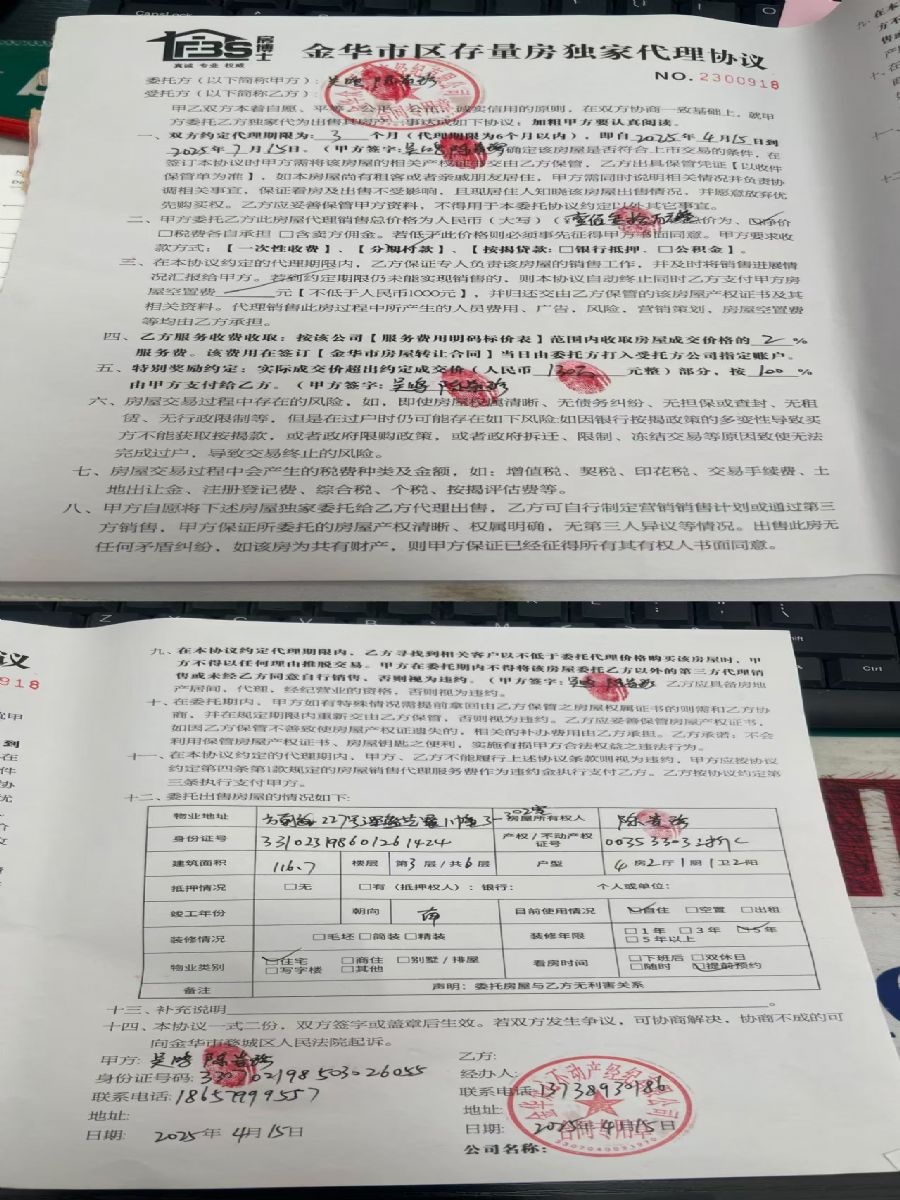 FBS 房博士
真诚 专业 权威
金华市区存量房独家代理协议
NO. 2300918
委托方（以下简称甲方）：
受托方（以下简称乙方）：
甲乙双方本着自愿、平等、公平、诚实信用的原则，在双方协商一致基础上，就甲
方委托乙方独家代为出售其房产 事达成如下协议：加粗甲方要认真阅读。
一、双方约定代理期限为：3 个月（代理期限为6个月以内），即自2025年4月15日到
2025年7月15日。（甲方签字： 确定该房屋是否符合上市交易的条件，在
签订本协议时甲方需将该房屋的相关产权证书交由乙方保管，乙方出具保管凭证【以收件
保管单为准】，如本房屋尚有租客或者亲戚朋友居住，甲方需同时说明相关情况并负责协
调相关事宜，保证看房及出售不受影响，且现居住人知晓该房屋出售情况，并愿意放弃优
先购买权。乙方应妥善保管甲方资料，不得用于本委托协议约定以外其它事宜。
二、甲方委托乙方此房屋代理销售总价格为人民币（大写）（ 价为、☑净价
□税费各自承担 □含卖方佣金。若低于此价格则必须事先征得甲方书面同意。甲方要求收
款方式：【一次性收费】、【分期付款】、【按揭贷款：□银行抵押、□公积金】。
三、在本协议约定的代理期限内，乙方保证专人负责该房屋的销售工作，并及时将销售进展情
况汇报给甲方。若到约定期限仍未能实现销售的，则本协议自动终止同时乙方支付甲方房
屋空置费 元【不低于人民币1000元】，并归还交由乙方保管的该房屋产权证书及其
相关资料。代理销售此房过程中所产生的人员费用、广告，风险，营销策划，房屋空置费
等均由乙方承担。
四、乙方服务收费收取：按该公司【服务费用明码标价表】范围内收取房屋成交价格的 2 %
服务费。该费用在签订【金华市房屋转让合同】当日由委托方打入受托方公司指定账户。
五、特别奖励约定：实际成交价超出约定成交价（人民币 元整）部分，按 100 %
由甲方支付给乙方。（甲方签字：
六、房屋交易过程中存在的风险，如，即使房屋权属清晰、无债务纠纷、无担保或查封、无租
赁、无行政限制等，但是在过户时仍可能存在如下风险:如因银行按揭政策的多变性导致买
方不能获取按揭款，或者政府限购政策，或者政府拆迁、限制、冻结交易等原因致使无法
完成过户，导致交易终止的风险。
七、房屋交易过程中会产生的税费种类及金额，如：增值税、契税、印花税、交易手续费、土
地出让金、注册登记费、综合税、个税、按揭评估费等。
八、甲方自愿将下述房屋独家委托给乙方代理出售，乙方可自行制定营销销售计划或通过第三
方销售，甲方保证所委托的房屋产权清晰、权属明确，无第三人异议等情况。出售此房无
任何矛盾纠纷，如该房为共有财产，则甲方保证已经征得所有其有权人书面同意。
九、在本协议约定代理期限内，乙方寻找到相关客户以不低于委托代理价格购买该房屋时，甲
方不得以任何理由推脱交易。甲方在委托期内不得将该房屋委托乙方以外的第三方代理销
售或未经乙方同意自行销售、否则视为违约。（甲方签字： 乙方应具备房地
产居间，代理，经纪营业的资格，否则视为违约。
十、在委托期内，甲方如有特殊情况需提前拿回由乙方保管之房屋权属证书的则需和乙方协
商，并在规定期限内重新交由乙方保管，否则视为违约。乙方应妥善保管房屋产权证书，
如因乙方保管不善致使房屋产权证遗失的，相关的补办费用由乙方承担。乙方承诺：不会
利用保管房屋产权证书、房屋钥匙之便利，实施有损甲方合法权益之违法行为。
十一、在本协议约定的代理期内，甲方、乙方不能履行上述协议条款则视为违约，甲方应按协议
约定第四条第1款规定的房屋销售代理服务费作为违约金执行支付乙方。乙方按协议约定第
三条执行支付甲方。
十二、委托出售房屋的情况如下:
物业地址 房屋所有权人
身份证号 331023198601261424 产权/不动产权证号
建筑面积 116.7 楼层 第3层/共6层 户型 4房2厅1厨1卫2阳
抵押情况 □无 □有（抵押权人）：银行： 个人或单位：
竣工年份 朝向 南 目前使用情况 ☑自住 □空置 □出租
装修情况 □毛坯 □简装 □精装 装修年限 □1年 □3年 ☑5年 □5年以上
物业类别 ☑住宅 □商住 □别墅/排屋 □写字楼 □其他 看房时间 □下班后 □双休日 □随时 ☑提前预约
备注 声明：委托房屋与乙方无利害关系
十三、补充说明 。
十四、本协议一式二份，双方签字或盖章后生效。若双方发生争议，可协商解决，协商不成的可
向金华市婺城区人民法院起诉。
甲方: 乙方:
身份证号码: 330702198503026055 经办人:
联系电话: 18657999557 联系电话: 13738930186
地址: 地址:
日期: 2025年4月15日 日期: 2025年4月15日
公司名称：